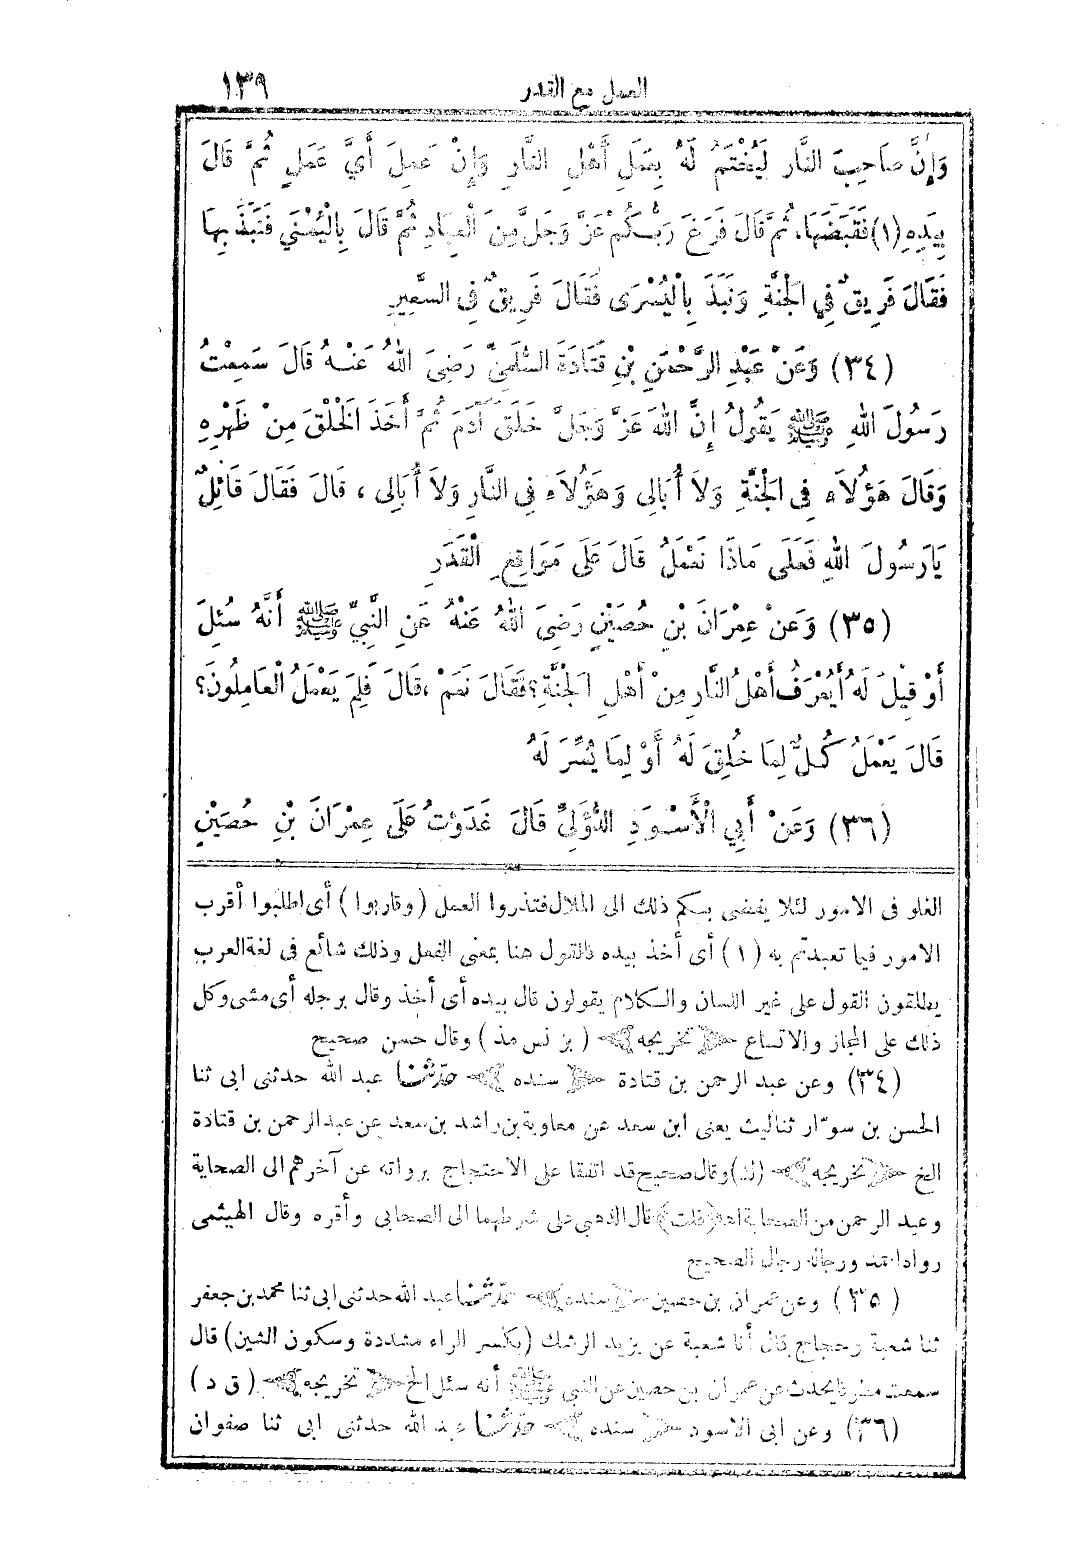 العمل مع القدر ١٣٩
وَإِنَّ صَاحِبَ النَّارِ لَيُخْتَمُ لَهُ بِعَمَلِ أَهْلِ النَّارِ وَإِنْ عَمِلَ أَيَّ عَمَلٍ ثُمَّ قَالَ
بِيَدِهِ (١) فَقَبَضَهَا، ثُمَّ قَالَ فَرَغَ رَبُّكُمْ عَزَّ وَجَلَّ مِنَ الْعِبَادِ ثُمَّ قَالَ بِالْيُمْنَى فَنَبَذَ بِهَا
فَقَالَ فَرِيقٌ فِي الْجَنَّةِ وَنَبَذَ بِالْيُسْرَى فَقَالَ فَرِيقٌ فِي السَّعِيرِ
(٣٤) وَعَنْ عَبْدِ الرَّحْمَنِ بْنِ قَتَادَةَ السُّلَمِيِّ رَضِيَ اللهُ عَنْهُ قَالَ سَمِعْتُ
رَسُولَ اللهِ ﷺ يَقُولُ إِنَّ اللهَ عَزَّ وَجَلَّ خَلَقَ آدَمَ ثُمَّ أَخَذَ الْخَلْقَ مِنْ ظَهْرِهِ
وَقَالَ هَؤُلَاءِ فِي الْجَنَّةِ وَلَا أُبَالِى وَهَؤُلَاءِ فِي النَّارِ وَلَا أُبَالِى ، قَالَ فَقَالَ قَائِلٌ
يَا رَسُولَ اللهِ فَعَلَى مَاذَا نَعْمَلُ قَالَ عَلَى مَوَاقِعِ الْقَدَرِ
(٣٥) وَعَنْ عِمْرَانَ بْنِ حُصَيْنٍ رَضِيَ اللهُ عَنْهُ عَنِ النَّبِيِّ ﷺ أَنَّهُ سُئِلَ
أَوْ قِيلَ لَهُ أَيُعْرَفُ أَهْلُ النَّارِ مِنْ أَهْلِ الْجَنَّةِ؟ فَقَالَ نَعَمْ ، قَالَ فَلِمَ يَعْمَلُ الْعَامِلُونَ؟
قَالَ يَعْمَلُ كُلٌّ لِمَا خُلِقَ لَهُ أَوْ لِمَا يُسِّرَ لَهُ
(٣٦) وَعَنْ أَبِي الْأَسْوَدِ الدُّؤَلِيِّ قَالَ غَدَوْتُ عَلَى عِمْرَانَ بْنِ حُصَيْنٍ
الغلو فى الامور لئلا يفضى بكم ذلك الى الملال فتذروا العمل (وقاربوا) أى اطلبوا أقرب
الامور فيما تعبدتم به (١) أى أخذ بيده فالقول هنا بمعنى الفعل وذلك شائع فى لغة العرب
يطلقون القول على غير اللسان والكلام يقولون قال بيده أى أخذ وقال برجله أى مشى وكل
ذلك على المجاز والاتساع ﴿ تخريجه ﴾ (بز نس مذ) وقال حسن صحيح
(٣٤) وعن عبد الرحمن بن قتادة ﴿ سنده ﴾ حدّثنا عبد الله حدثنى ابى ثنا
الحسن بن سوّار ثنا ليث يعنى ابن سعد عن معاوية بن راشد بن سعد عن عبد الرحمن بن قتادة
الخ ﴿ تخريجه ﴾ (ك) وقال صحيح قد اتفقا على الاحتجاج برواته عن آخرهم الى الصحابة
وعبد الرحمن من الصحابة اهـ (قلت) قال الذهبى على شرطهما الى الصحابى وأقره وقال الهيثمى
رواه احمد ورجاله رجال الصحيح
(٣٥) وعن عمران بن حصين ﴿ سنده ﴾ حدّثنا عبد الله حدثنى ابى ثنا محمد بن جعفر
ثنا شعبة وحجاج قال أنا شعبة عن يزيد الرشك (بكسر الراء مشددة وسكون الشين) قال
سمعت مطرفا يحدث عن عمران بن حصين عن النبى ﷺ أنه سئل الخ ﴿ تخريجه ﴾ (ق د)
(٣٦) وعن ابى الاسود ﴿ سنده ﴾ حدّثنا عبد الله حدثنى ابى ثنا صفوان